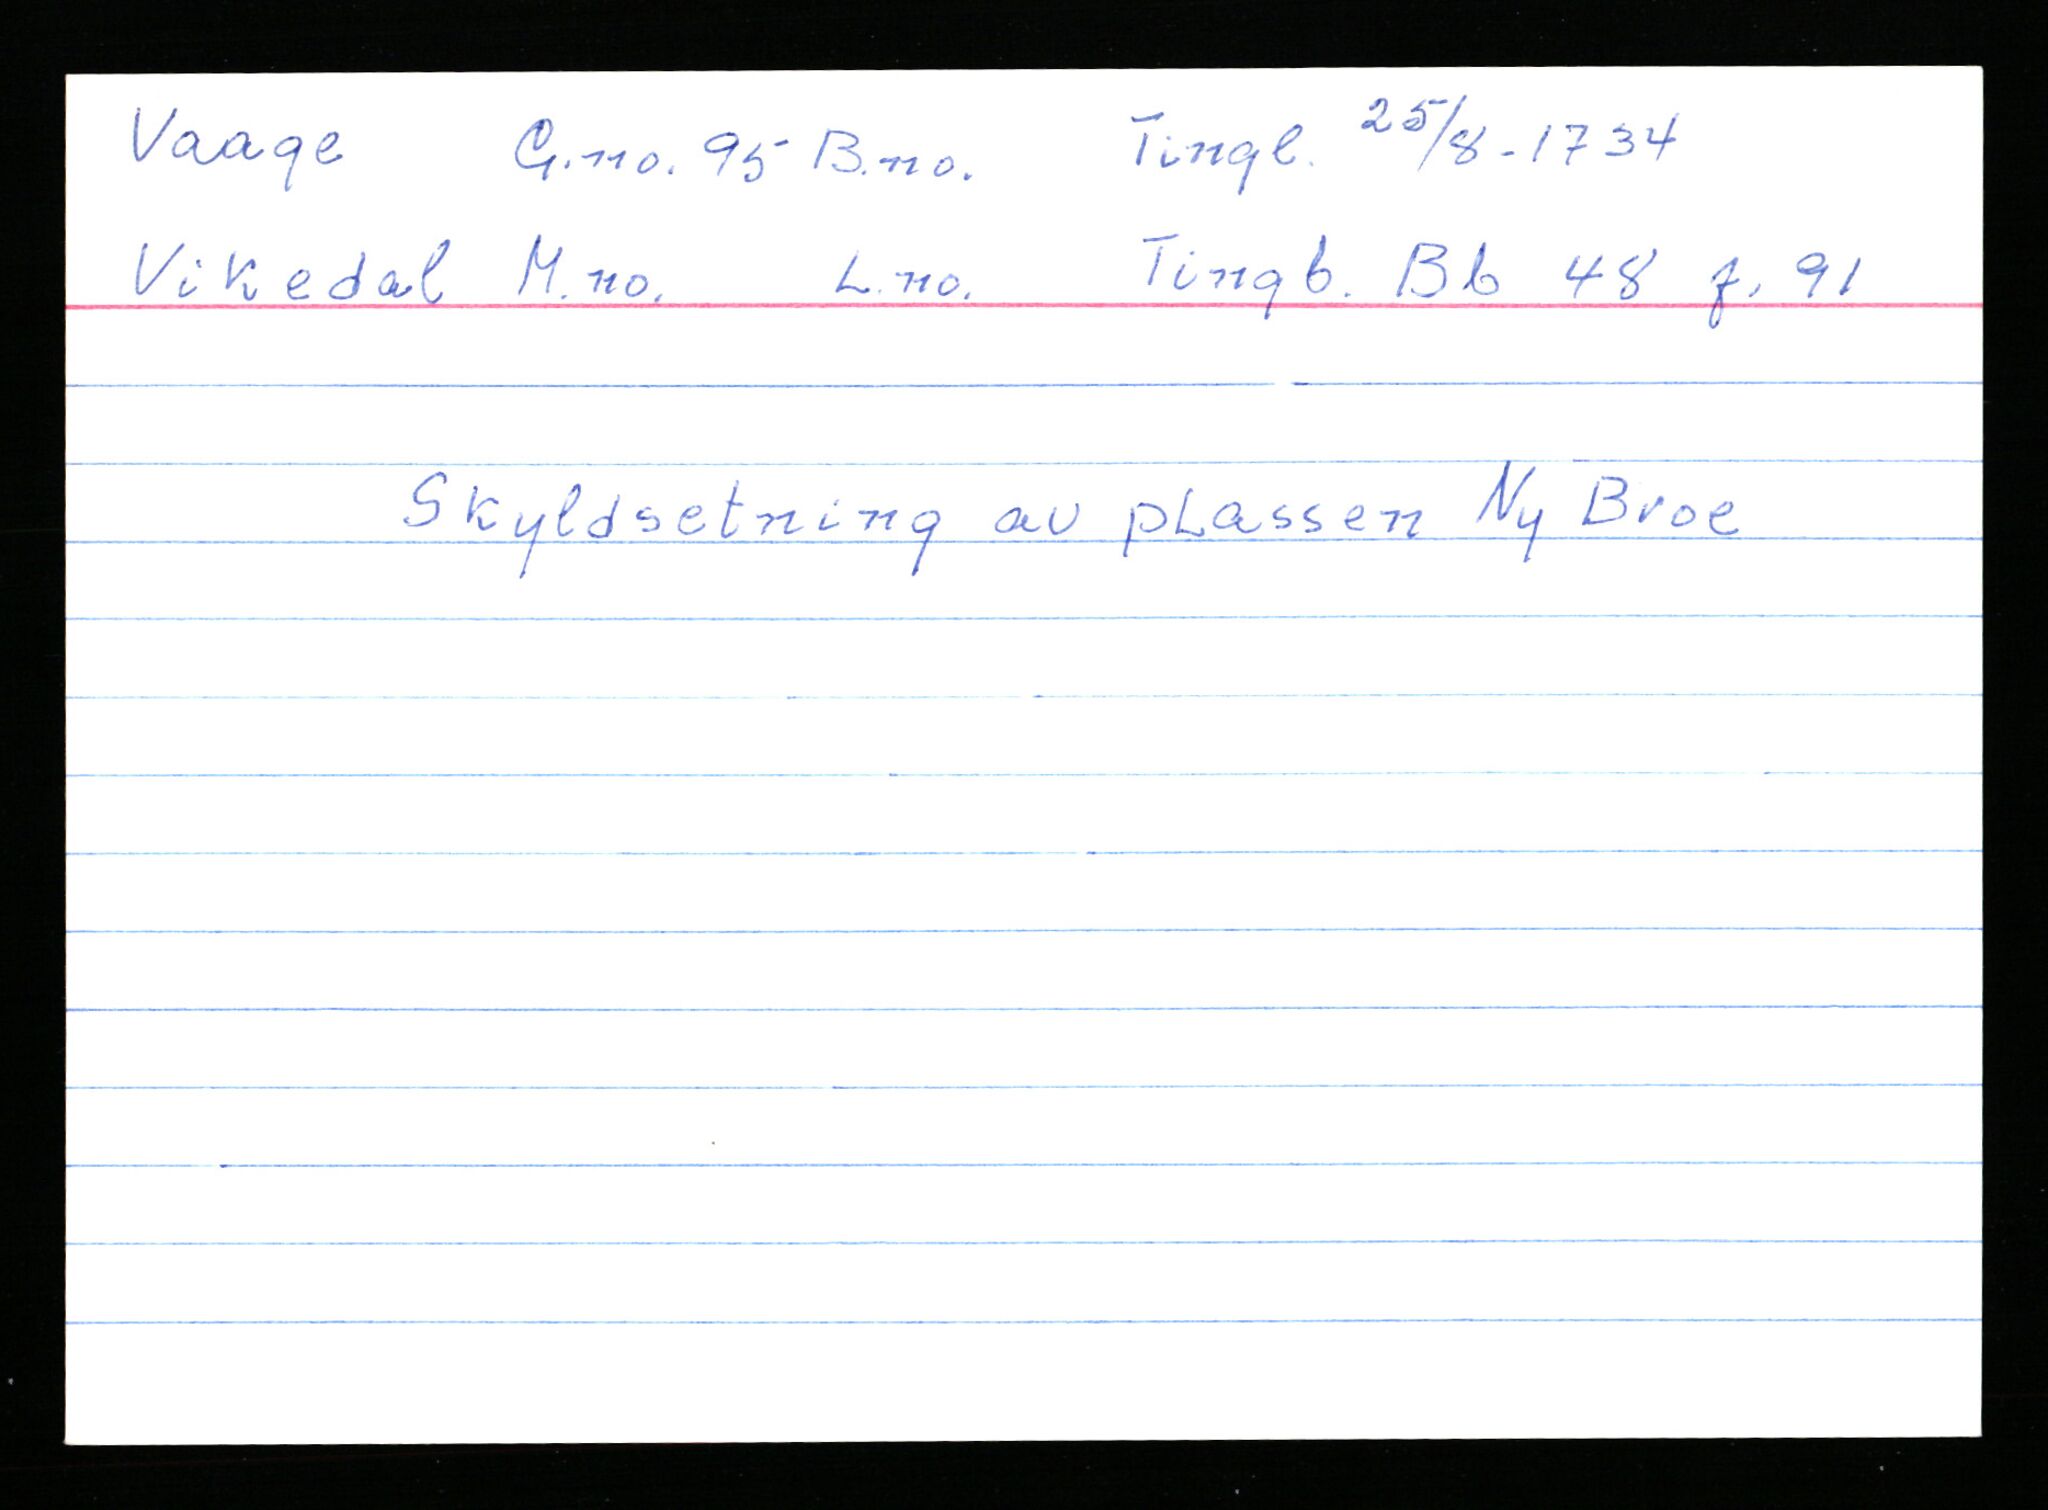 Vaage G.no. 95 B.no. Tingl. 25/8-1734
Vikedal M.no. L.no. Tingb. Bb 48 f. 91
Skyldsetning av plassen Ny Broe